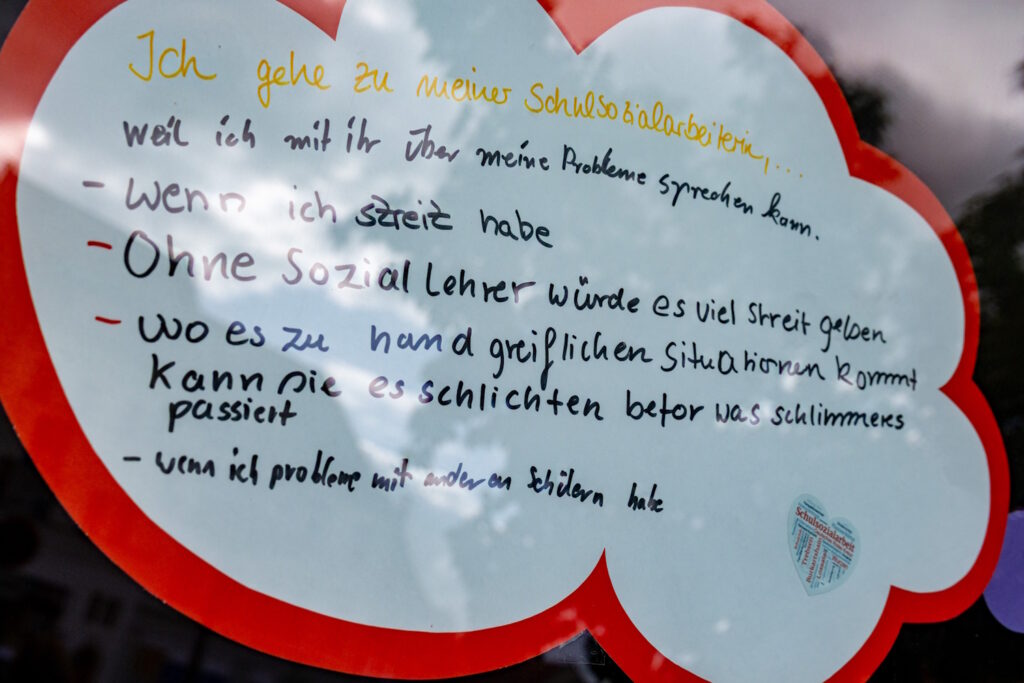 Ich gehe zu meiner Schulsozialarbeiterin,...
weil ich mit ihr über meine Probleme sprechen kann.
- Wenn ich streit habe
- Ohne Sozial Lehrer würde es viel Streit geben
- wo es zu hand greiflichen Situationen kommt
kann sie es schlichten befor was schlimmeres
passiert
- wenn ich probleme mit anderen Schülern habe
Schulsozialarbeit